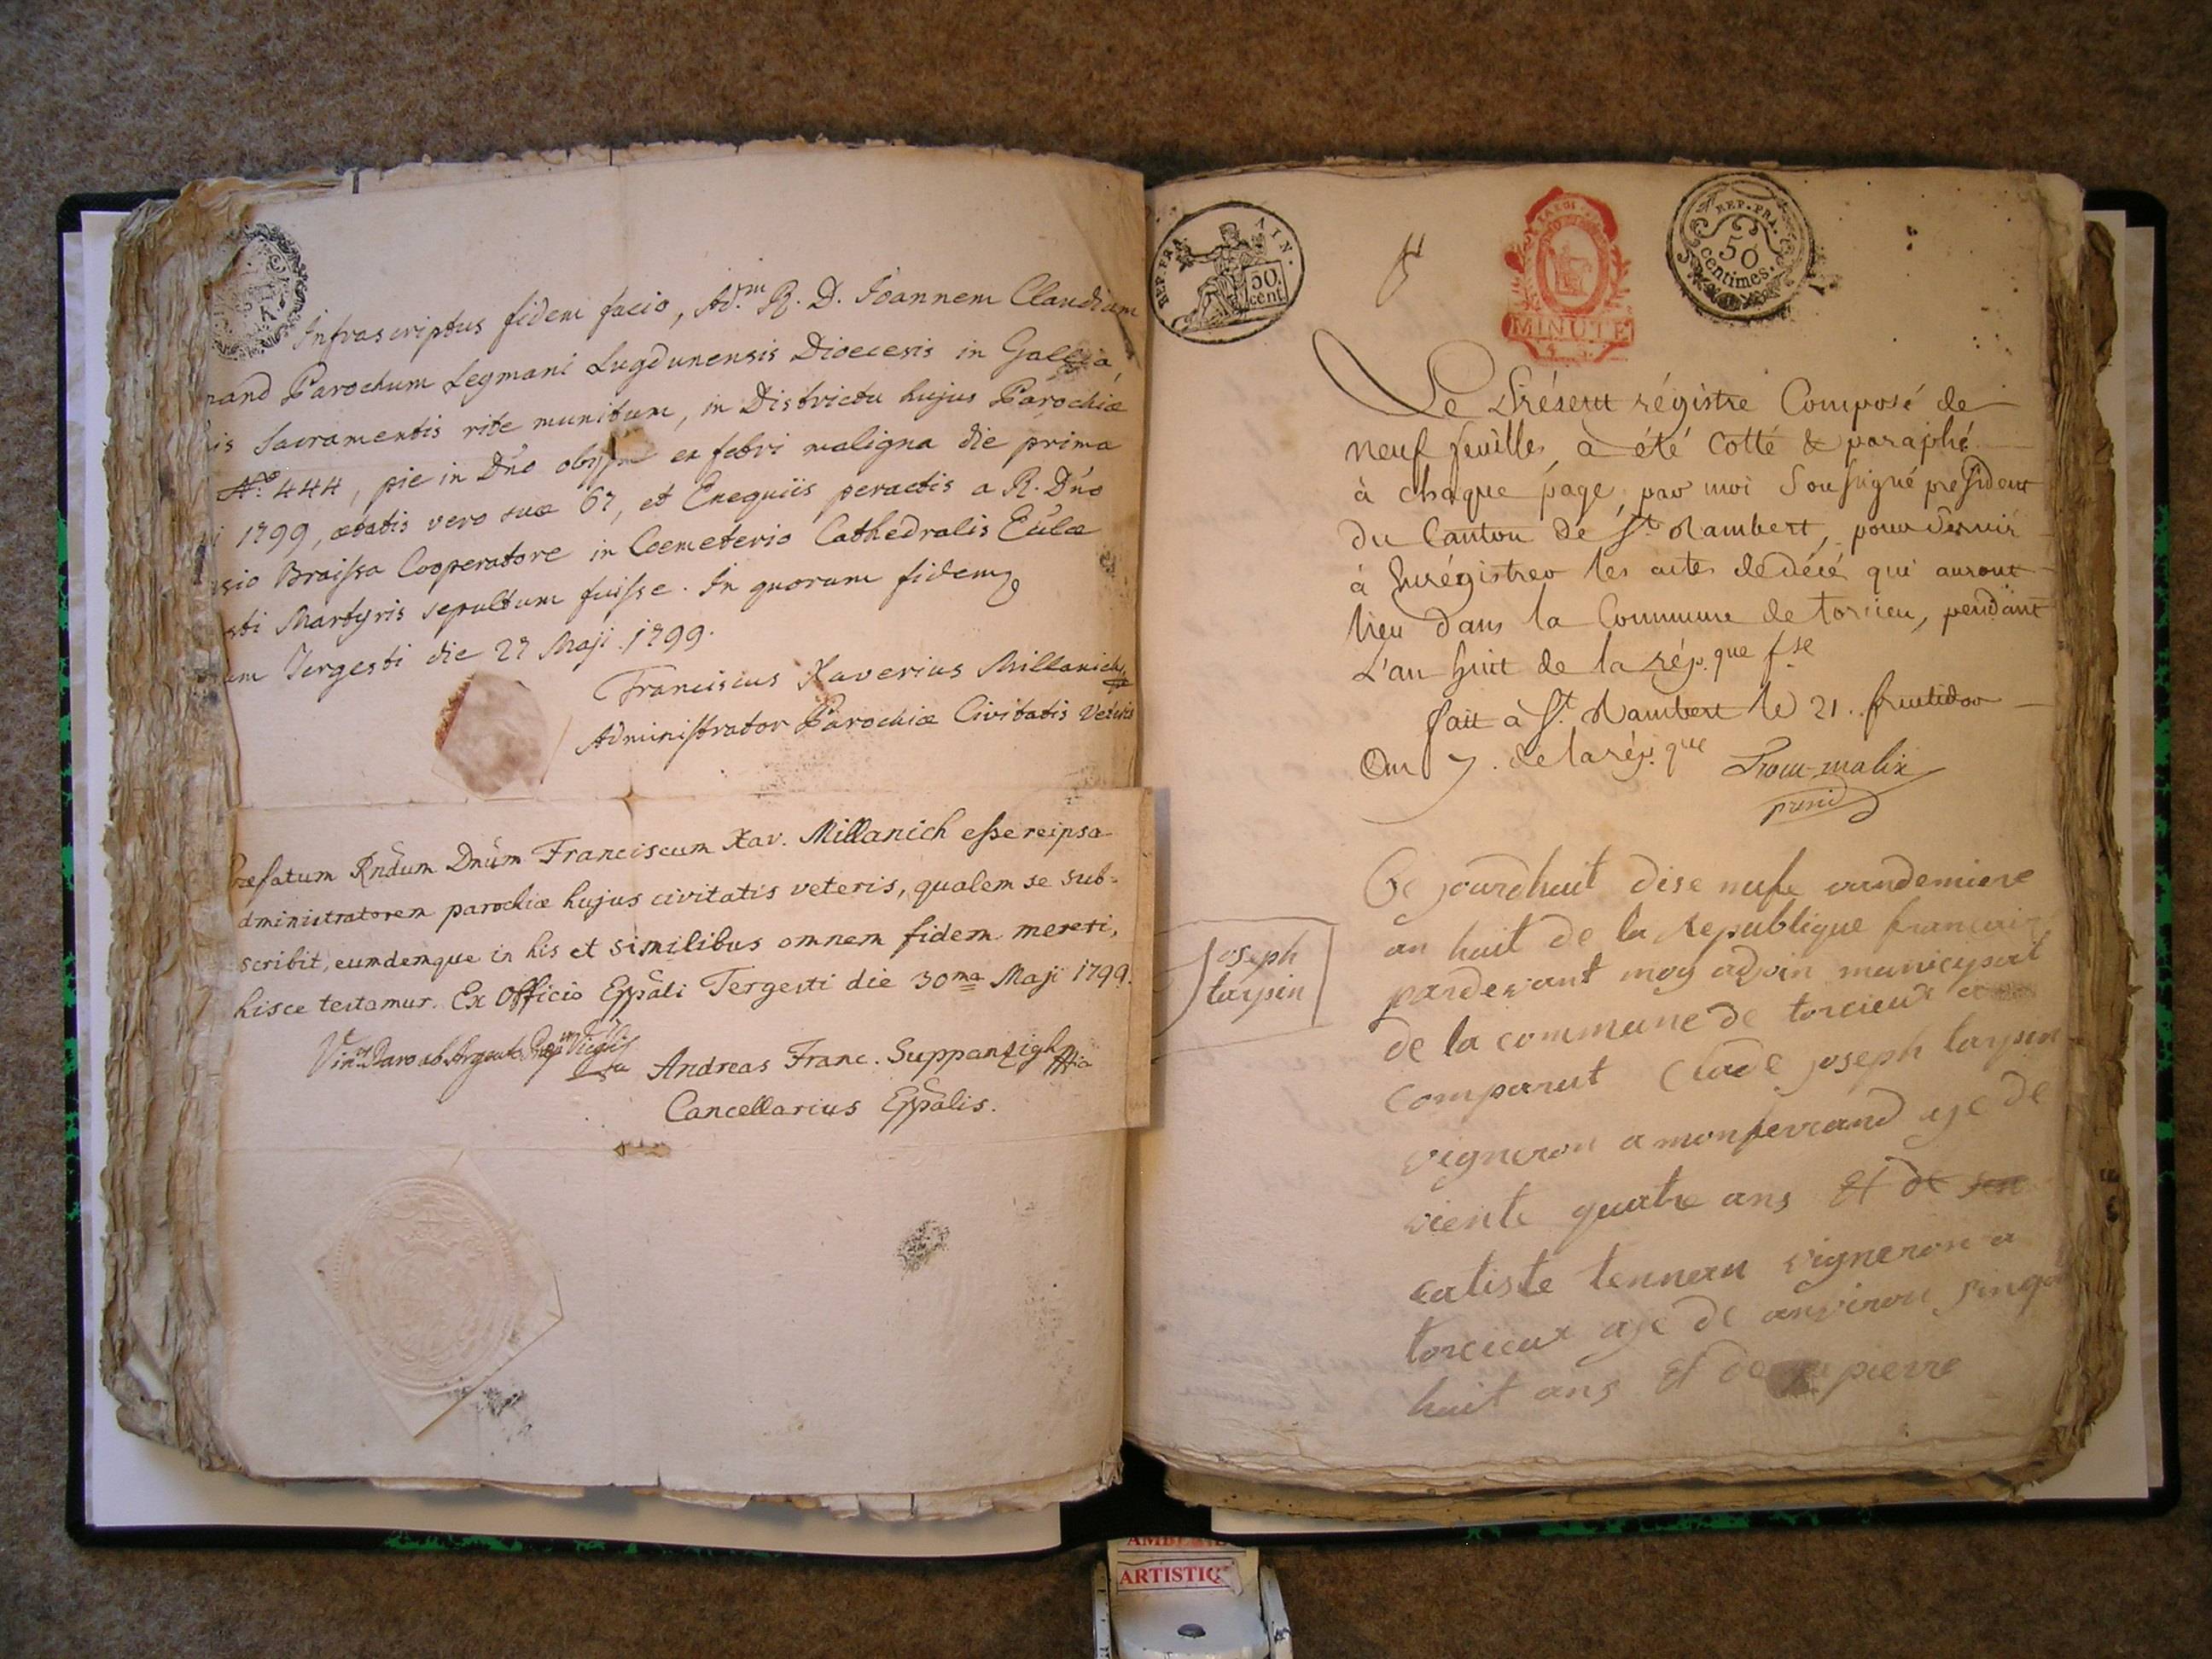 Infrascriptus fidem facio, Ad.m R. D. Joannem Claudium
rand Parochum Legmani Lugdunensis Dioecesis in Gallia,
is Sacramentis rite munitum, in Districtu hujus Parochiæ
No 444, pie in Dno obijsse ex febri maligna die prima
i 1799, ætatis vero suæ 67, et Exequiis peractis a R. Dno
sio Braissa Cooperatore in Coemeterio Cathedralis Eulæ
sti Martyris sepultum fuisse. In quorum fidem
um Tergesti die 27 Maji 1799.
Franciscus Xaverius Millanich
Administrator Parochiæ Civitatis Veteris
Præfatum Rndum Dnum Franciscum Xav. Millanich esse reipsa
dministratorem parochiæ hujus civitatis veteris, qualem se sub-
scribit, eumdemque in his et similibus omnem fidem mereri,
hisce testamur. Ex Officio Eppali Tergesti die 30ma Maji 1799.
Andreas Franc. Suppanzigh
Cancellarius Eppalis.
REP. FRA. AIN.
50
cent
MINUTE
REP. FRA.
50
centimes.
Le Présent régistre Composé de
neuf feuilles, a été Cotté & paraphé
à chaque page par moi Soussigné président
du Canton de St Rambert, pour servir
à Enrégistrer les actes de décé qui auront
lieu dans la Commune de torcieu, pendant
L'an huit de la rép.que fse
fait à St Rambert le 21. fructidor
an 7. de la rép.que
presid
Joseph
tarpin
Ce jourdhuit dise nufe vandemiere
an huit de la Republique francais
pardevant moy adjoin municypat
de la commune de torcieux a
comparut Claude joseph tarpin
vigneron a monferrand aje de
viente quatre ans Et de son
batiste tennean vigneron a
torcieux aje de anviron sinqan
huit ans Et de pierre
AMBERIE
ARTISTIQ